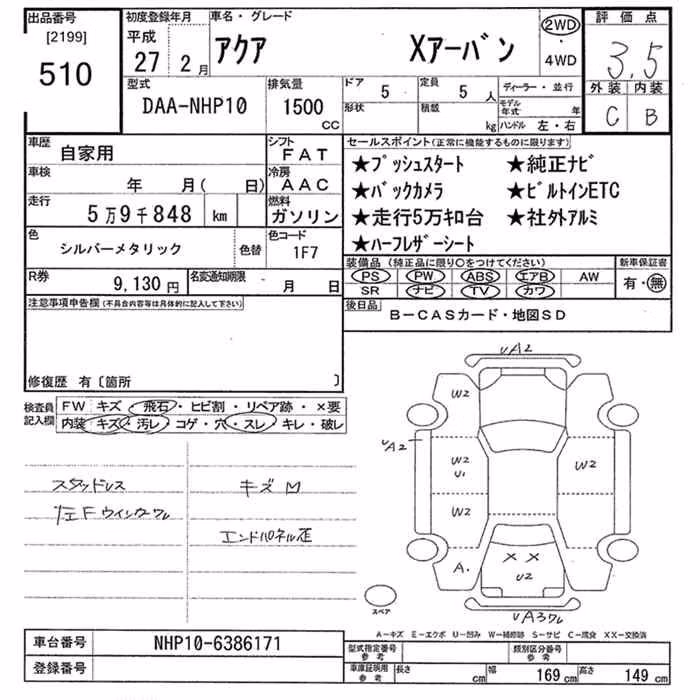 出品番号
[2199]
510
初度登録年月
平成
27 2月
車名・グレード
アクア Xアーバン
2WD
・
4WD
評価点
3.5
外装 内装
C B
型式
DAA-NHP10
排気量
1500
cc
ドア 5
定員 5 人
形状
積載 kg
ディーラー・並行
モデル年式 年
ハンドル 左・右
車歴
自家用
シフト
FAT
車検
年 月( 日)
冷房
AAC
走行
5万9千848 km
燃料
ガソリン
色
シルバーメタリック
色替
色コード
1F7
R券
9,130円
名変通知期限
月 日
セールスポイント(正常に機能するものに限ります)
★プッシュスタート ★純正ナビ
★バックカメラ ★ビルトインETC
★走行5万キロ台 ★社外アルミ
★ハーフレザーシート
装備品(純正品に限り○をつけてください)
PS PW ABS エアB AW
SR ナビ TV カワ
新車保証書
有・無
後日品
B-CASカード・地図SD
注意事項申告欄(不具合内容等は具体的に記入して下さい)
修復歴 有〔箇所 〕
検査員記入欄
FW キズ・飛石・ヒビ割・リペア跡・×要
内装 キズ・汚レ・コゲ・穴・スレ・キレ・破レ
スタッドレス
左Fウインカーワレ
キズ
エンドパネル歪
UA2
W2
UA2
W2
U1
W2
W2
A.
××
U2
UA3ワレ
スペア
A-キズ E-エクボ U-凹み W-補修跡 S-サビ C-腐食 XX-交換済
車台番号 NHP10-6386171
登録番号
型式指定番号
参考
類別区分番号
参考
車庫証明用
参考
長さ cm 幅 169cm 高さ 149cm